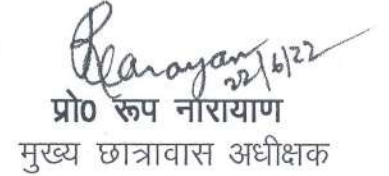 RNarayan
22/6/22
प्रो0 रूप नारायण
मुख्य छात्रावास अधीक्षक